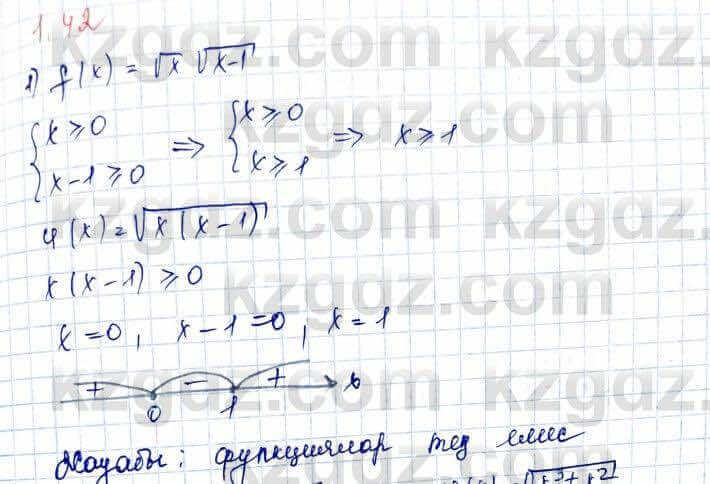 1.42
1) f(x) = √x √(x-1)
{x ≥ 0
x-1 ≥ 0 => {x ≥ 0
x ≥ 1 => x ≥ 1
φ(x) = √(x(x-1))
x(x-1) ≥ 0
x = 0, x-1 = 0, x = 1
+ - + x
0 1
Жауабы: функциялар тең емес
√(x³+x²)
kzgdz.com